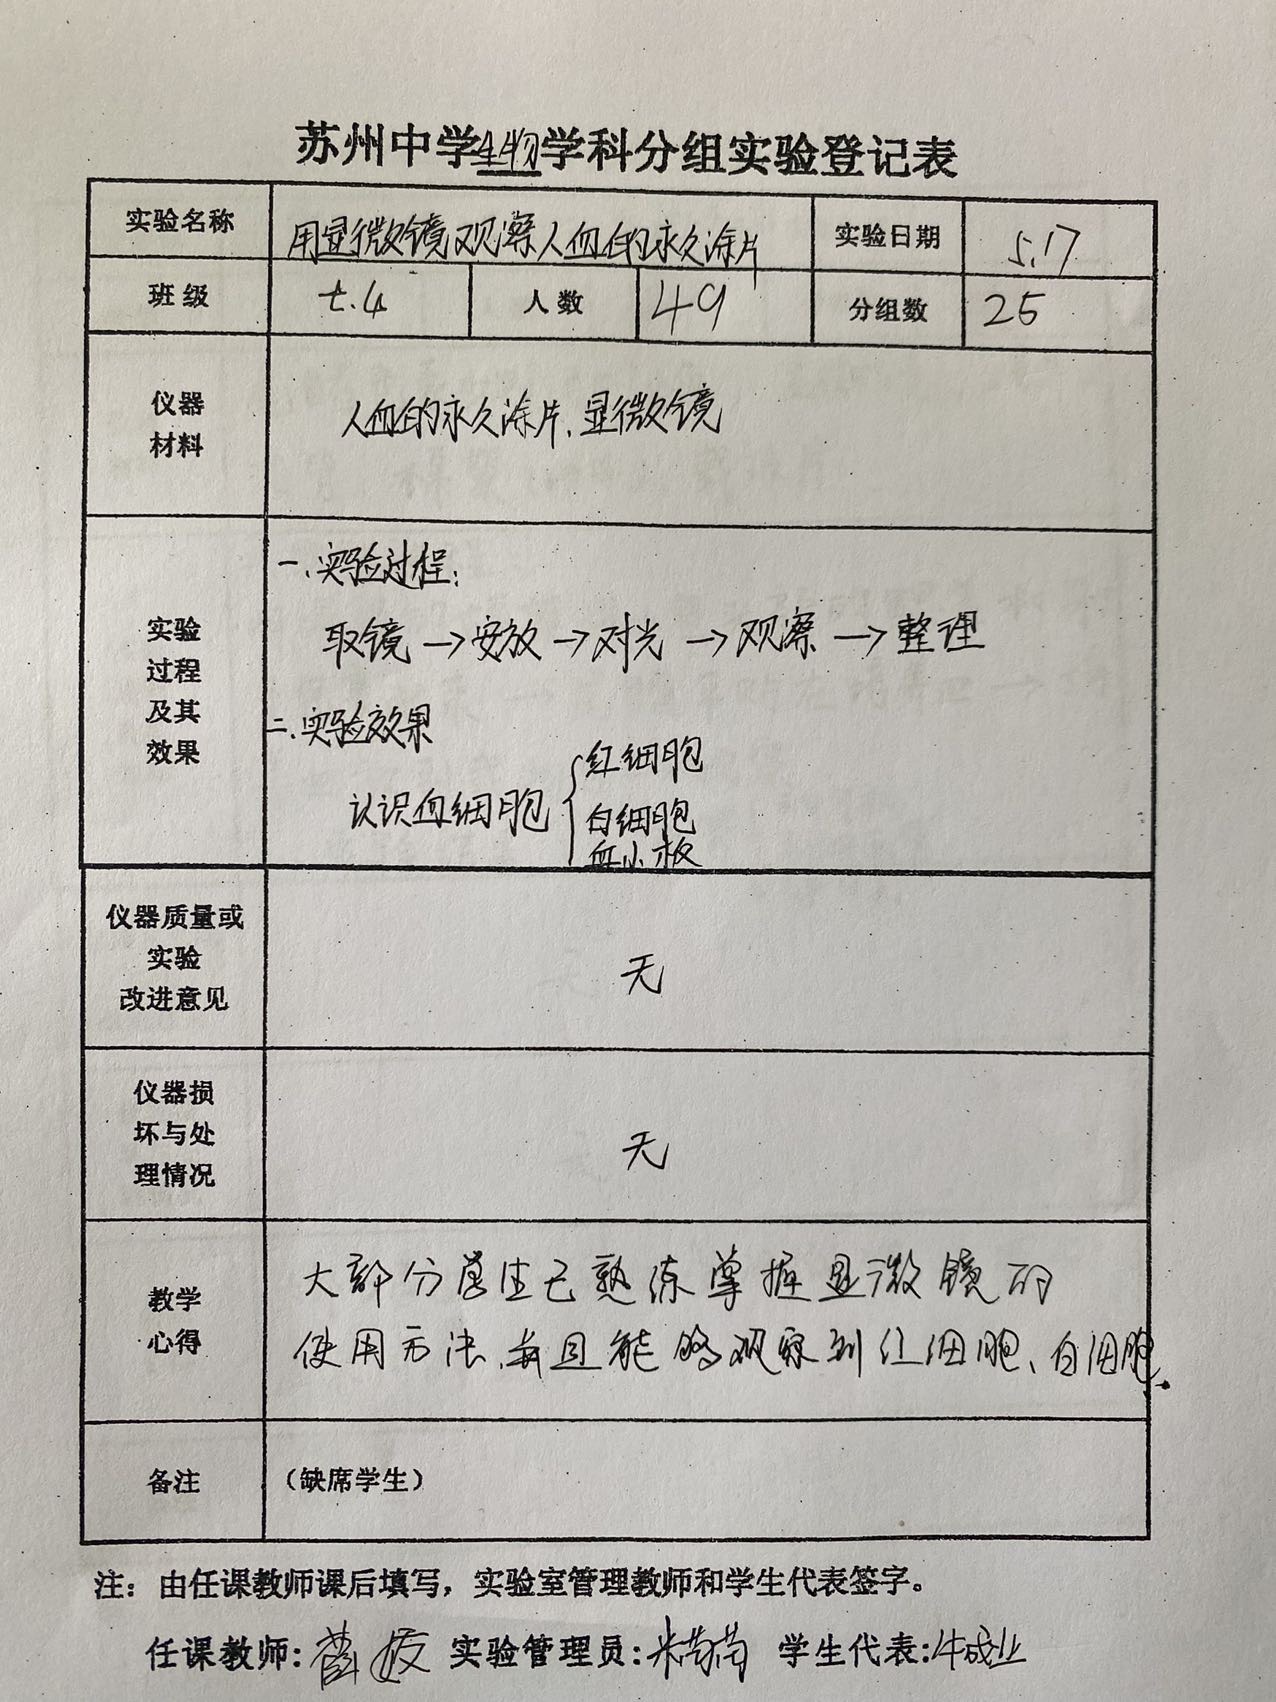 苏州中学生物学科分组实验登记表
实验名称 用显微镜观察人血的永久涂片 实验日期 5.17
班级 七.4 人数 49 分组数 25
仪器
材料
人血的永久涂片、显微镜
实验
过程
及其
效果
一、实验过程:
取镜→安放→对光→观察→整理
二、实验效果
认识血细胞
红细胞
白细胞
血小板
仪器质量或
实验
改进意见
无
仪器损
坏与处
理情况
无
教学
心得
大部分学生已熟练掌握显微镜的
使用方法,并且能够观察到红细胞、白细胞.
备注 (缺席学生)
注：由任课教师课后填写，实验室管理教师和学生代表签字。
任课教师: 实验管理员: 学生代表: